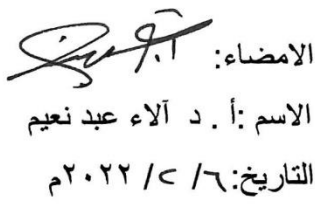 الامضاء:
الاسم :أ . د آلاء عبد نعيم
التاريخ: ٦ / ٢ / ٢٠٢٢م